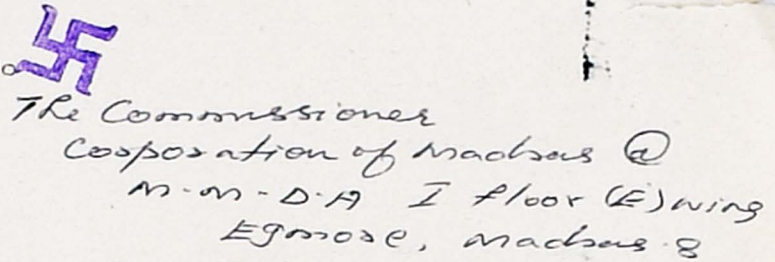 The Commissioner
Corporation of Madras @
M.M.D.A I floor (E) wing
Egmore, Madras.8